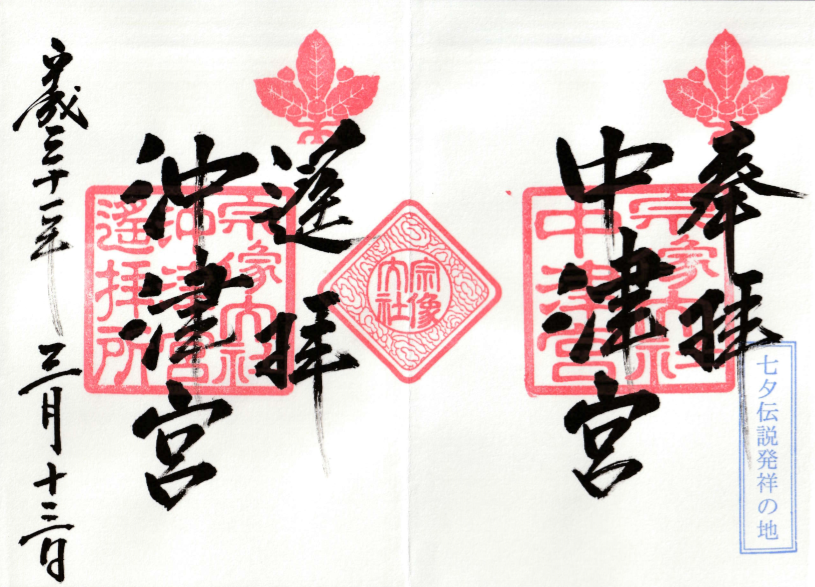 奉拝
中津宮
宗像大社
中津宮
七夕伝説発祥の地
宗像大社
遥拝
沖津宮
宗像大社
沖津宮
遙拝所
平成三十一年 三月十三日